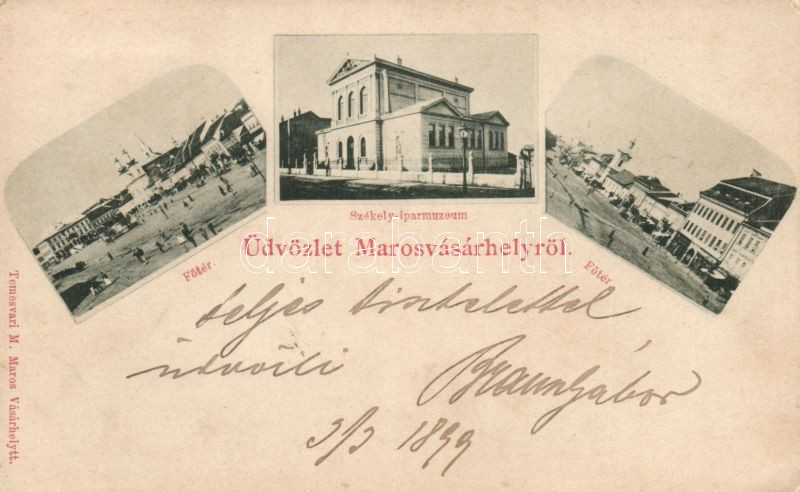 Székely-Iparmuzeum
Üdvözlet Marosvásárhelyről.
Főtér.
Főtér
Temesvari M. Maros Vásárhelytt.
darabanth
teljes tisztelettel
üdvözli Braun Gábor
3/3 1899